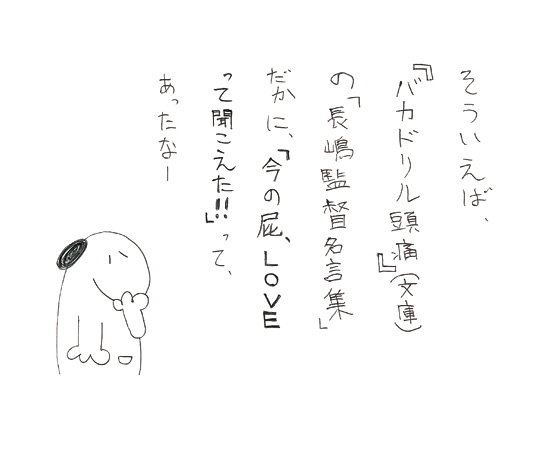 そういえば、
『バカドリル頭痛』(文庫)
の「長嶋監督名言集」
だかに、「今の屁、LOVE
って聞こえた!!」って、
あったなー